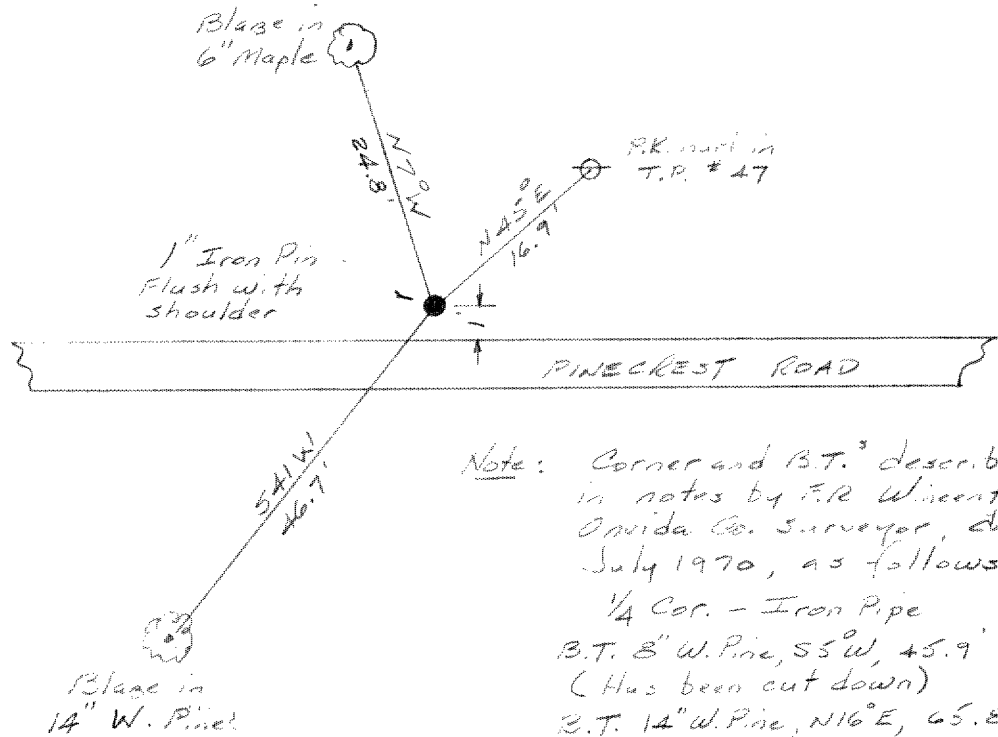 Blaze in
6" Maple
N7°W
24.8'
P.K. nail in
T.P. #47
N45°E
16.9'
1" Iron Pin
Flush with
shoulder
1'
PINECREST ROAD
S41W
46.7'
Blaze in
14" W. Pine
Note: Corner and B.T.'s describ
in notes by F.R
Oneida Co. Surveyor, d
July 1970, as follows
1/4 Cor. - Iron Pipe
B.T. 8" W. Pine, S5°W, 45.9'
(Has been cut down)
B.T. 14" W. Pine, N16°E, 65.8